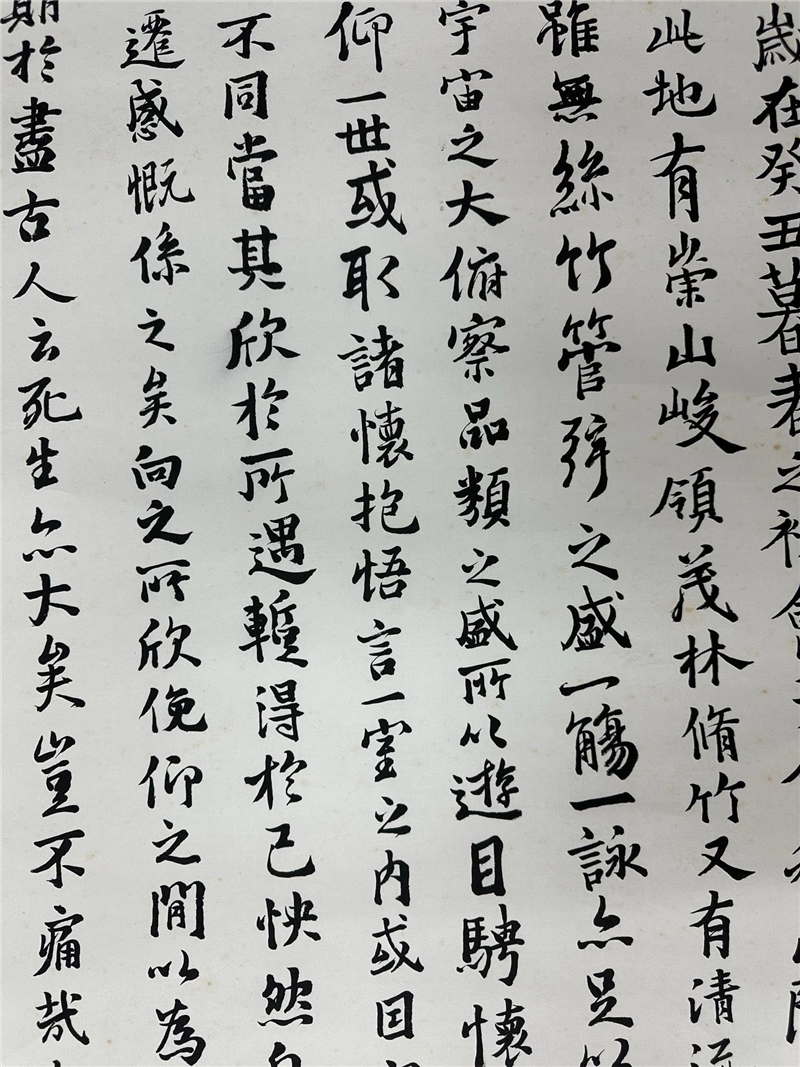 歲在癸丑暮春之初會
此地有崇山峻領茂林脩竹又有清流
雖無絲竹管弦之盛一觴一詠亦足以
宇宙之大俯察品類之盛所以遊目騁懷
仰一世或取諸懷抱悟言一室之內或因
不同當其欣於所遇暫得於己怏然自
遷感慨係之矣向之所欣俛仰之閒以為
期於盡古人云死生亦大矣豈不痛哉